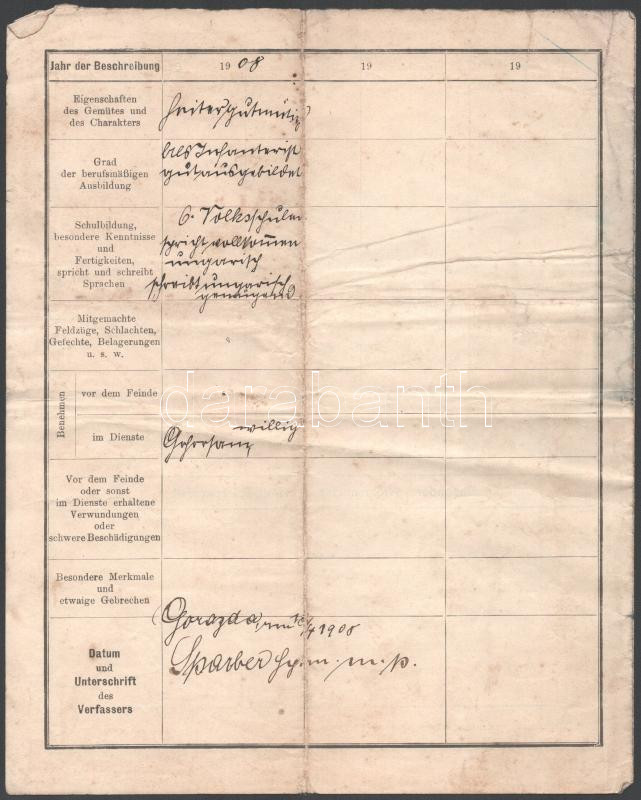 Jahr der Beschreibung 1908 19 19
Eigenschaften
des Gemütes und
des Charakters
heiter, gutmütig
Grad
der berufsmäßigen
Ausbildung
als Infanterist
gut ausgebildet
Schulbildung,
besondere Kenntnisse
und
Fertigkeiten,
spricht und schreibt
Sprachen
6. Volksschulen
spricht vollkommen
ungarisch
schreibt ungarisch
genügend
Mitgemachte
Feldzüge, Schlachten,
Gefechte, Belagerungen
u. s. w.
Benehmen
vor dem Feinde
im Dienste
willig
Gehorsam,
Vor dem Feinde
oder sonst
im Dienste erhaltene
Verwundungen
oder
schwere Beschädigungen
Besondere Merkmale
und
etwaige Gebrechen
Datum
und
Unterschrift
des
Verfassers
Gorazda, am /4 1908
Sparber m. p.
darabanth